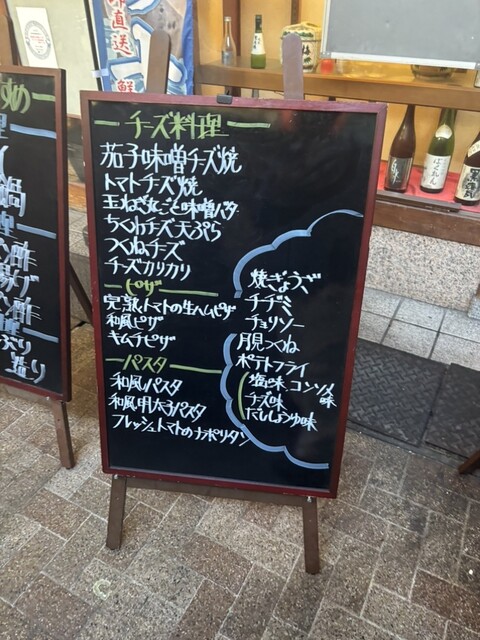 チーズ料理
茄子味噌チーズ焼
トマトチーズ焼
玉ねぎ丸ごと味噌バター
ちくわチーズ天ぷら
つくねチーズ
チーズカリカリ
ピザ
完熟トマトの生ハムピザ
和風ピザ
キムチピザ
パスタ
和風パスタ
和風明太子パスタ
フレッシュトマトのナポリタン
焼ぎょうざ
チヂミ
チョリソー
月見つくね
ポテトフライ
塩味、コンソメ味
チーズ味
だししょうゆ味
直送
鍋
酢
酢